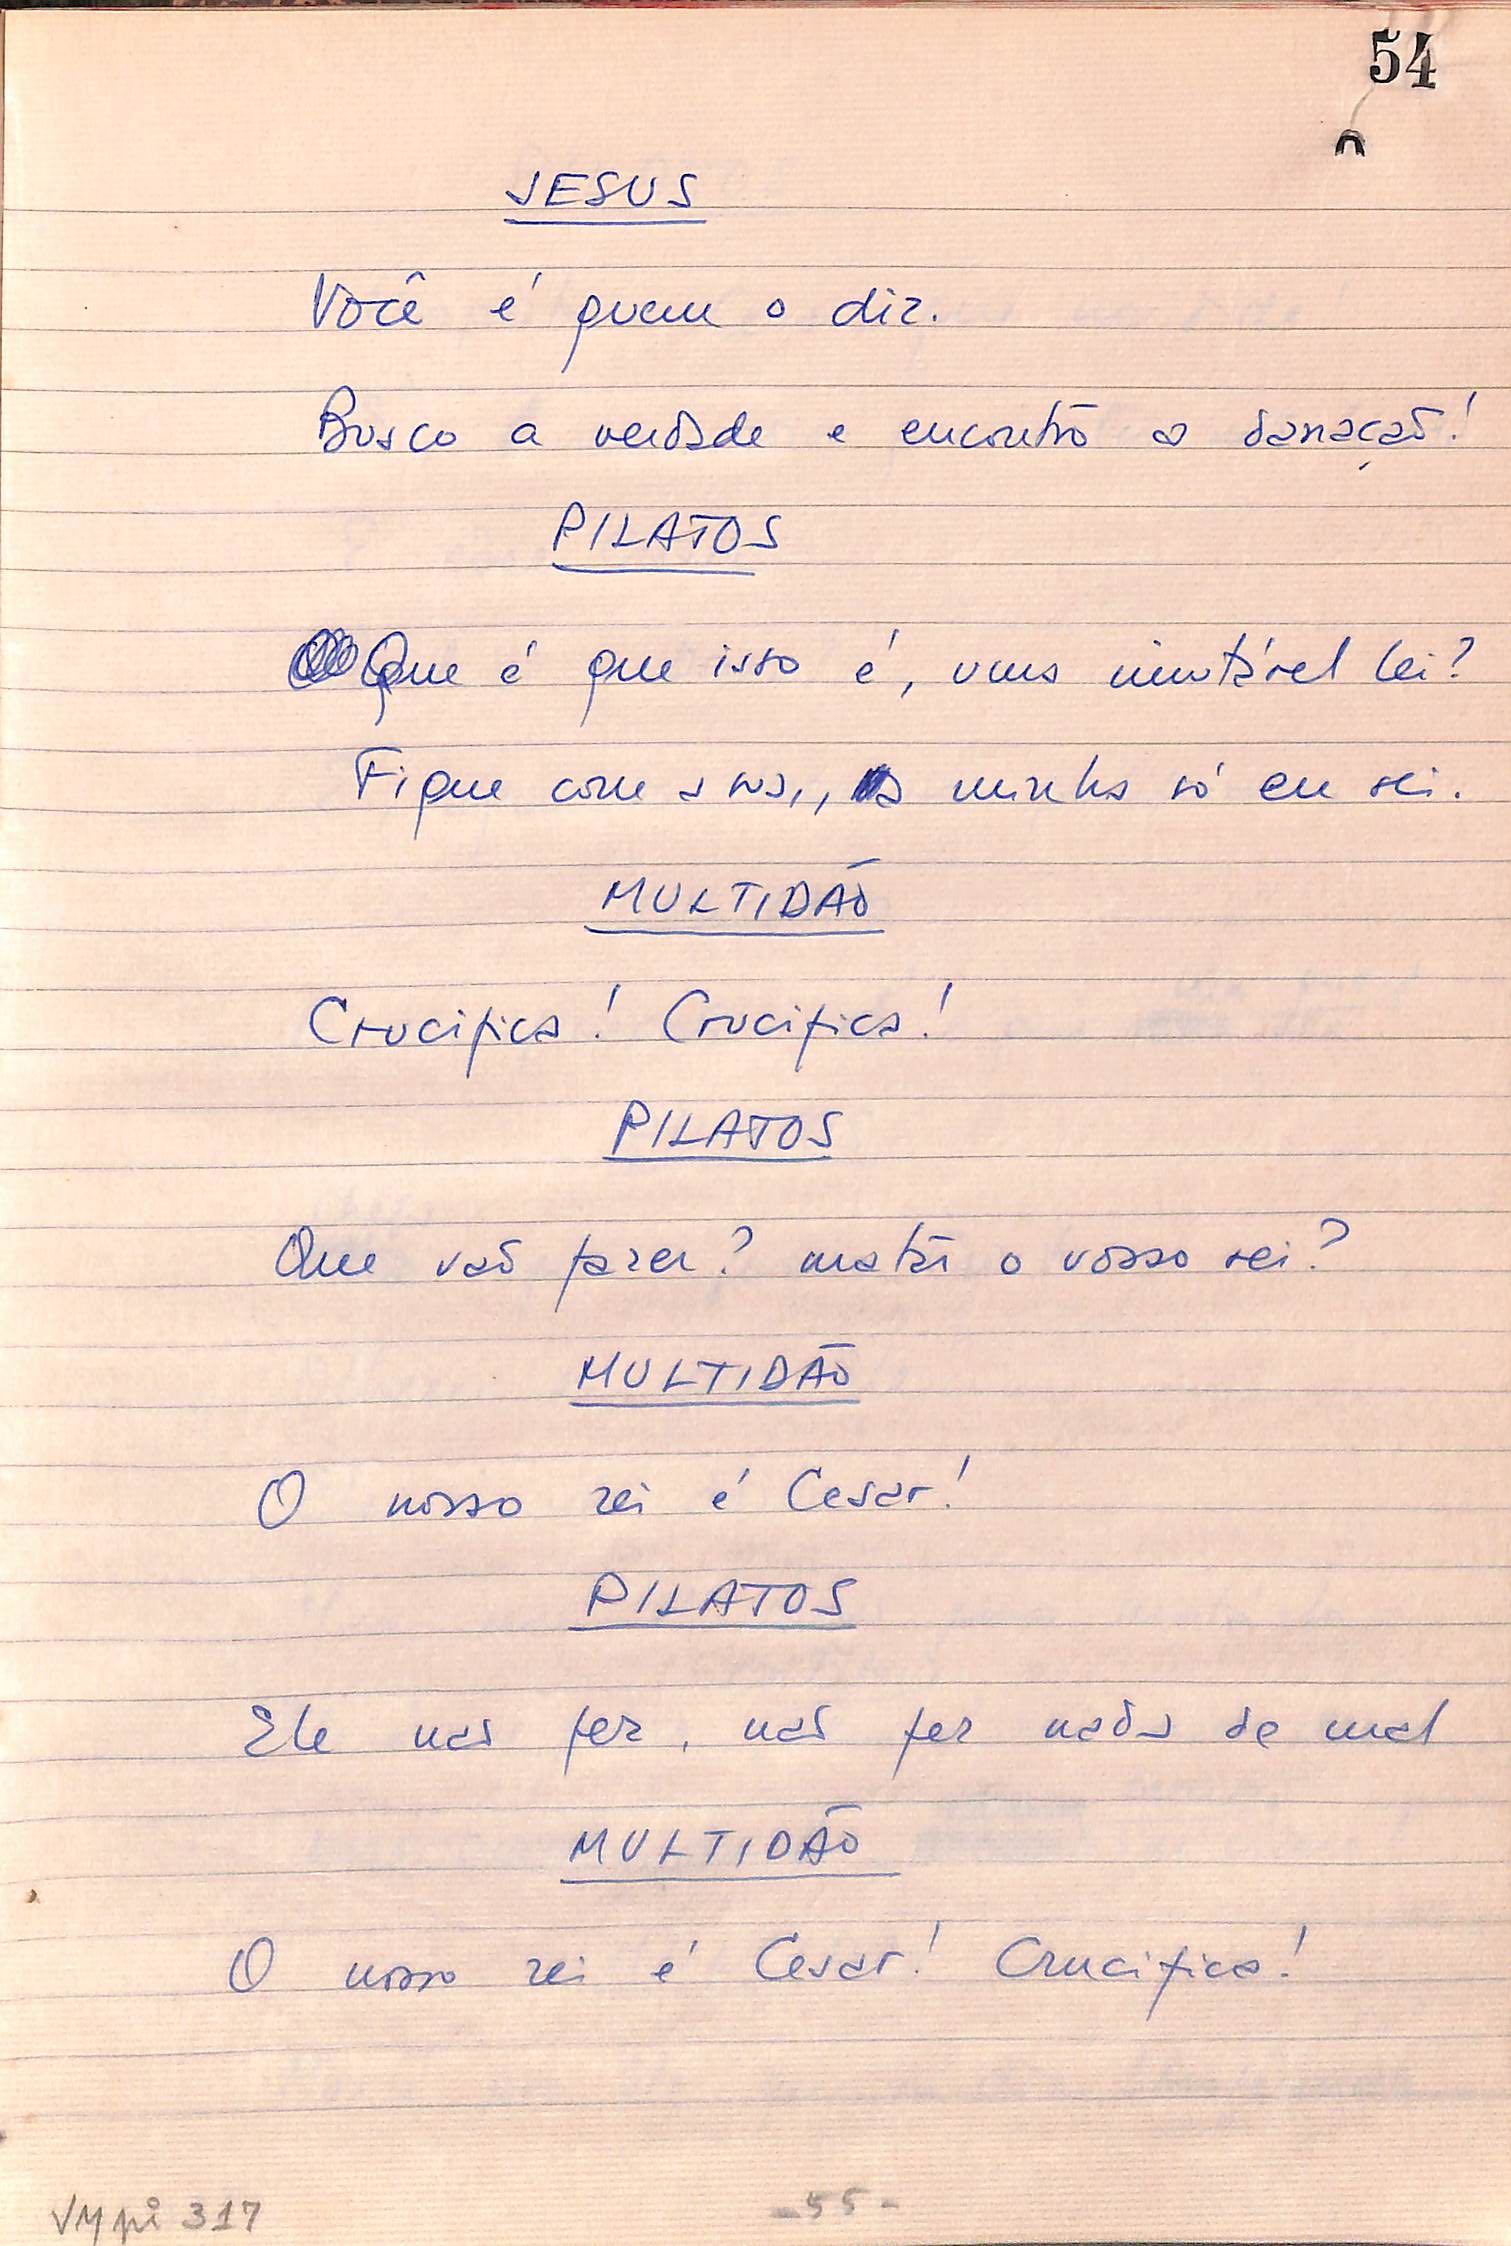 54
JESUS
Você é quem o diz.
Busco a verdade e encontro a danação!
PILATOS
Que é que isso é, uma imutável lei?
Fique com a sua,, a minha só eu sei.
MULTIDÃO
Crucifica! Crucifica!
PILATOS
Que vão fazer? matar o vosso rei?
MULTIDÃO
O nosso rei é Cesar!
PILATOS
Ele não fez, não fez nada de mal
MULTIDÃO
O nosso rei é Cesar! Crucifica!
VMpi 317
-55-